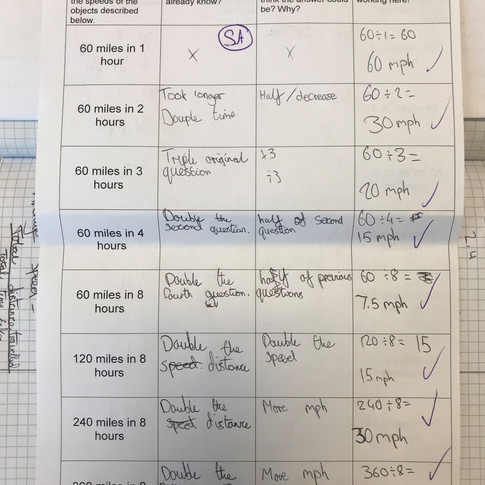 the speeds of the
objects described
below.
already know?
think the answer could
be? Why?
working here?
60 miles in 1
hour
x
SA
x
60÷1=60
60 mph ✓
60 miles in 2
hours
Took longer
Double time
Half/decrease
60÷2=
30 mph ✓
60 miles in 3
hours
Triple original
question
x3
÷3
60÷3=
20 mph ✓
60 miles in 4
hours
Double the
second question.
half of second
question
60÷4=
15 mph ✓
60 miles in 8
hours
Double the
fourth question.
half of previous
questions
60÷8=
7.5 mph ✓
120 miles in 8
hours
Double the
distance
Double the
speed
120÷8=15
15mph ✓
240 miles in 8
hours
Double the
distance
More mph
240÷8=
30 mph ✓
360 miles in 8
Double the
More mph
360÷8= ✓
24
speed =
distance travelled